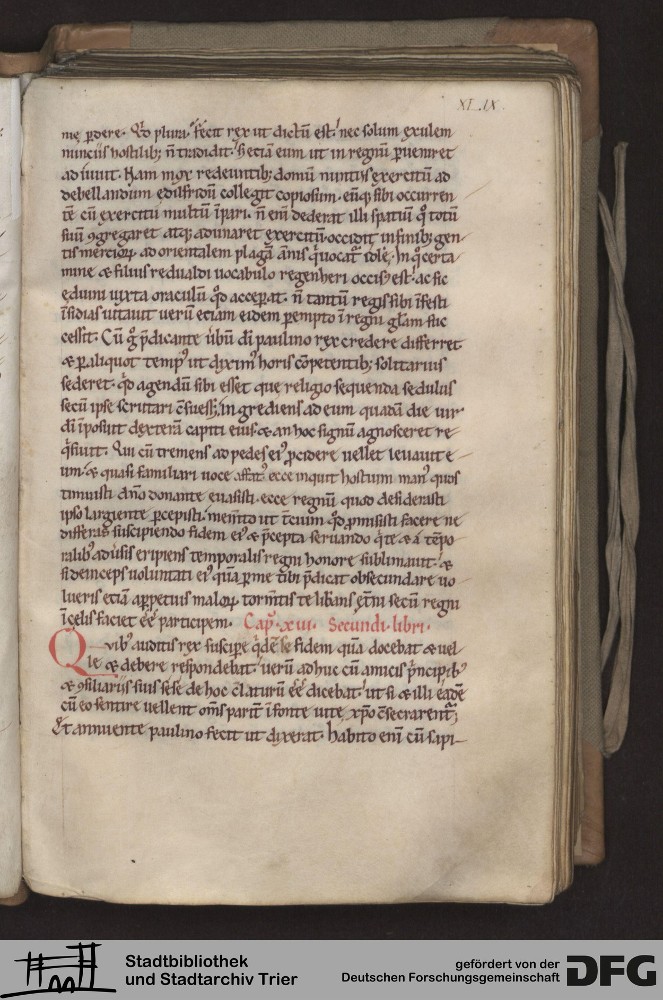 XLIX
mę ꝑdere· Qd̄ pluraˊ fecit rex ut dictū est· nec solum exulem
nunciis hostilib; n̄ tradidit· sʒ eciā eum ut in regnū ꝑueniret
ad iuuit· Nam mox redeuntib; domū nuntiis exercitū ad
debellandum edilfridū collegit copiosum· eūq; sibi occurren
tē cū exercitu multū īpari· n̄ enī dederat illi spatiū qͦ totū
suū ꝯgregaret atq; adunaret exercitū· occidit in finib; gen
tis merciorꝝ ad orientalem plagā ānis q̇ uocat᷑ idle· In qͦ certa
mine & filius redualdi uocabulo regenheri occisꝰ est· ac sic
eduini iuxta oraculū qd̄ acceꝑat· n̄ tantū regis sibi īfesti
īsidias uitauit uerū eciam eidem ꝑempto ī regni gl̄am suc
cessit· Cū gͦ p̄dicante ūbū dī paulino rex credere differret
& ꝑ aliquot tempꝰ ut diximꝰ horis cōpetentib; solitarius
sederet· qd̄ agendū sibi esset que religio sequenda sedulus
secū ipse scrutari c̄suess;· in grediens ad eum quadā die uir
dī īposuit dexterā capiti eius· & an hoc signū agnosceret re
q̇siuit· Qui cū tremens ad pedes eiꝰ ꝓcidere uellet leuauit e
um· & quasi familiari uoce affatꝰ ecce inquit hostium manꝰ quos
timuisti dn̄o donante euasisti· ecce regnū quod desiderasti
ipso largiente ꝑcepisti· mem̄to ut t̄cium qd̄ ꝓmisisti facere ne
differas suscipiendo fidem eiꝰ & p̄cepta seruando q̇ te & a tēpo
ralibꝰ aduersis eripiens temporalis regni honore sublimauit· &
si deinceps uoluntati eiꝰ quā ꝑ me tibi p̄dicat obsecundare uo
lueris eciā a ꝑpetuis malorꝝ torm̄tis te liberans et̄ni secū regni
ī celis faciet eē participem· Cap̄· xiii· Secundi· libri·
Qvibꝰ auditis rex suscipe q̇dē se fidem quā docebat & uel
le & debere respondebat· uerū adhuc cū amicis p̄ncipibꝰ
& ꝯsiliariis suis sese de hoc c̄laturū eē dicebat· ut si & illi eadē
cū eo sentire uellent om̄s parit̄ ī fonte uite xp̄o c̄secrarent᷑;
Et annuente paulino fecit ut dixerat· habito enī cū sapi
Stadtbibliothek
und Stadtarchiv Trier
gefördert von der
Deutschen Forschungsgemeinschaft
DFG